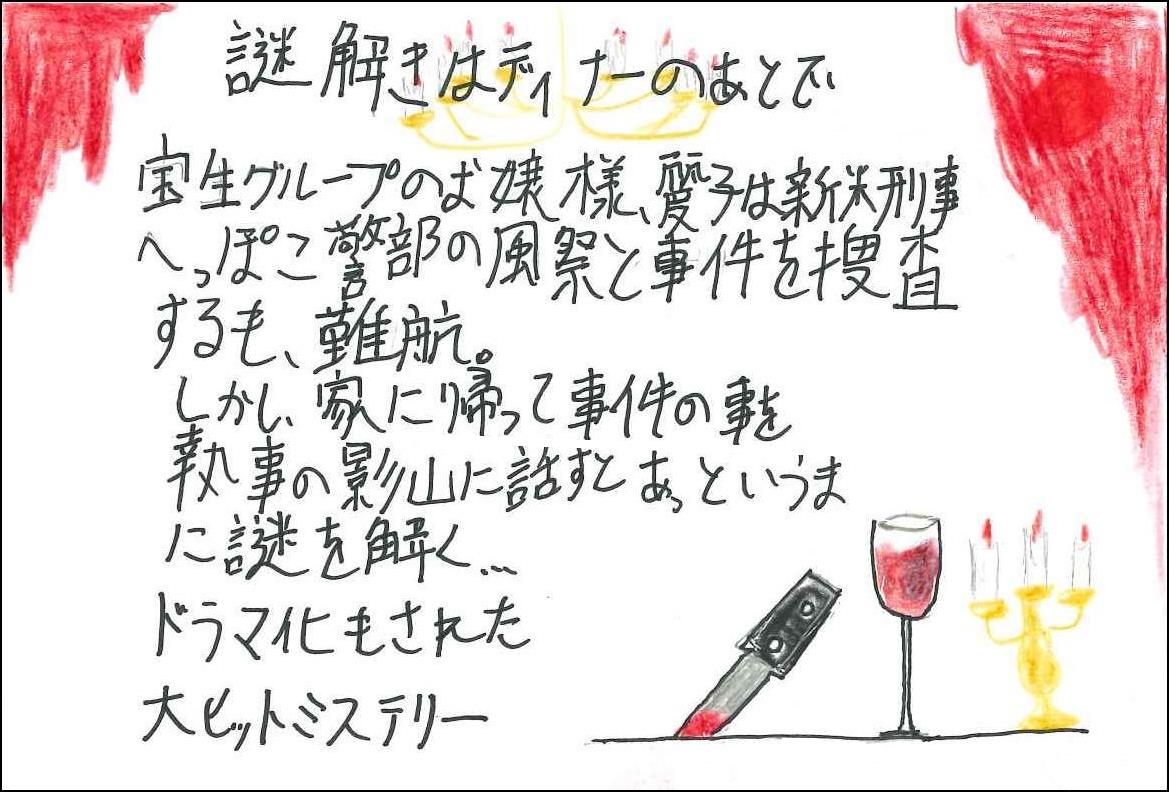 謎解きはディナーのあとで
宝生グループのお嬢様、愛子は新米刑事
へっぽこ警部の風祭と事件を捜査
するも、難航。
しかし、家に帰って事件の事を
執事の影山に話すとあっというま
に謎を解く…
ドラマ化もされた
大ヒットミステリー